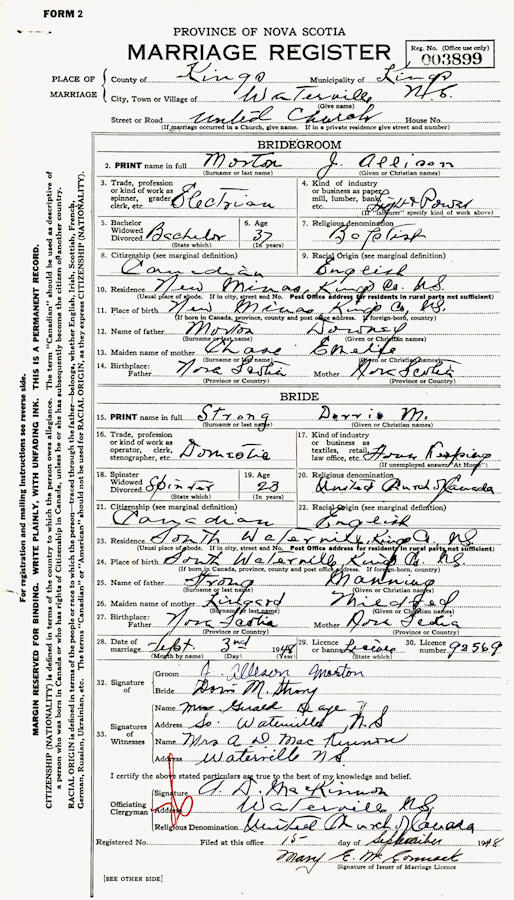 FORM 2
PROVINCE OF NOVA SCOTIA
MARRIAGE REGISTER
Reg. No. (Office use only)
003899
PLACE OF MARRIAGE
County of Kings Municipality of Kings
City, Town or Village of Waterville N.S.
(Give name)
Street or Road United Church House No.
(If marriage occurred in a Church, give name. If in a private residence give street and number)
BRIDEGROOM
2. PRINT name in full Morton J. Allison
(Surname or last name) (Given or Christian names)
3. Trade, profession or kind of work as spinner, grader, clerk, etc. Electrian
4. Kind of industry or business as paper mill, lumber, bank, etc. Light & Power
(If "labourer" specify kind of work above)
5. Bachelor Widowed Divorced Bachelor
(State which)
6. Age 37
(In years)
7. Religious denomination Baptist
8. Citizenship (see marginal definition) Canadian
9. Racial Origin (see marginal definition) English
10. Residence New Minas, Kings Co. N.S.
(Usual place of abode. If in city, street and No. Post Office address for residents in rural parts not sufficient)
11. Place of birth New Minas Kings Co. N.S.
(If born in Canada, province, county and post office address. If foreign-born, country)
12. Name of father Morton Downey
(Surname or last name) (Given or Christian names)
13. Maiden name of mother Chase
(Surname or last name) (Given or Christian names)
14. Birthplace: Father Nova Scotia Mother Nova Scotia
(Province or Country) (Province or Country)
BRIDE
15. PRINT name in full Strong Dorris M.
(Surname or last name) (Given or Christian names)
16. Trade, profession or kind of work as operator, clerk, stenographer, etc. Domestic
17. Kind of industry or business as textiles, retail, law office, etc. House Keeping
(If unemployed answer "At Home")
18. Spinster Widowed Divorced Spinster
(State which)
19. Age 23
(In years)
20. Religious denomination United Church of Canada
21. Citizenship (see marginal definition) Canadian
22. Racial Origin (see marginal definition) English
23. Residence South Waterville, Kings Co., N.S.
(Usual place of abode. If in city, street and No. Post Office address for residents in rural parts not sufficient)
24. Place of birth South Waterville Kings Co. N.S.
(If born in Canada, province, county and post office address. If foreign-born, country)
25. Name of father Strong Manning
(Surname or last name) (Given or Christian names)
26. Maiden name of mother Mildred
(Surname or last name) (Given or Christian names)
27. Birthplace: Father Nova Scotia Mother Nova Scotia
(Province or Country) (Province or Country)
28. Date of marriage Sept. 3rd 1948
(Month by name) (Day) (Year)
29. Licence or banns License
(State which)
30. Licence number 92569
32. Signature of
Groom J. Allison Morton
Bride Doris M. Strong
33. Signatures of Witnesses
Name Mrs Gerald
Address So. Waterville, N.S
Name Mrs A D MacKinnon
Address Waterville N.S.
I certify the above stated particulars are true to the best of my knowledge and belief.
Officiating Clergyman
Signature A. D. MacKinnon
Address Waterville N.S.
Religious Denomination United Church of Canada
Registered No. Filed at this office 15 day of September 1948
Mary E. McCormack
Signature of Issuer of Marriage Licence
[SEE OTHER SIDE]
For registration and mailing instructions see reverse side.
MARGIN RESERVED FOR BINDING. WRITE PLAINLY, WITH UNFADING INK. THIS IS A PERMANENT RECORD.
CITIZENSHIP (NATIONALITY) is defined in terms of the country to which the person owes allegiance. The term "Canadian" should be used as descriptive of
a person who was born in Canada or who has rights of Citizenship in Canada, unless he or she has subsequently become the citizen of another country.
RACIAL ORIGIN is defined in terms of the people or race to which the person—traced through the father—belongs, whether English, Irish, Scottish, French,
German, Russian, Ukrainian, etc. The terms "Canadian" or "American" should not be used for RACIAL ORIGIN, as they express CITIZENSHIP (NATIONALITY).